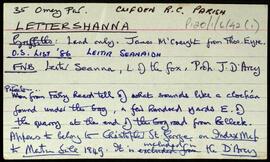 35 Omey Par. CLIFDEN R.C. PARISH
P120/1/6/42
LETTERSHANNA
Griffiths: Land only. James McCreight from Thos. Eyre.
O.S. LIST '86 LEITIR SEANAIDH
FNB Leitir Seanna, L. of the fox, Prop. J. D'Arcy
Man from Fahy Road tell of what sounds like a clochan
found under the bog, a few hundred yards E. of
the quarry at the end of the bog road from Belleek.
Appears to belong to Christopher St George, on Index Map
to Martin Sale 1849. It is excluded from the D'Arcy